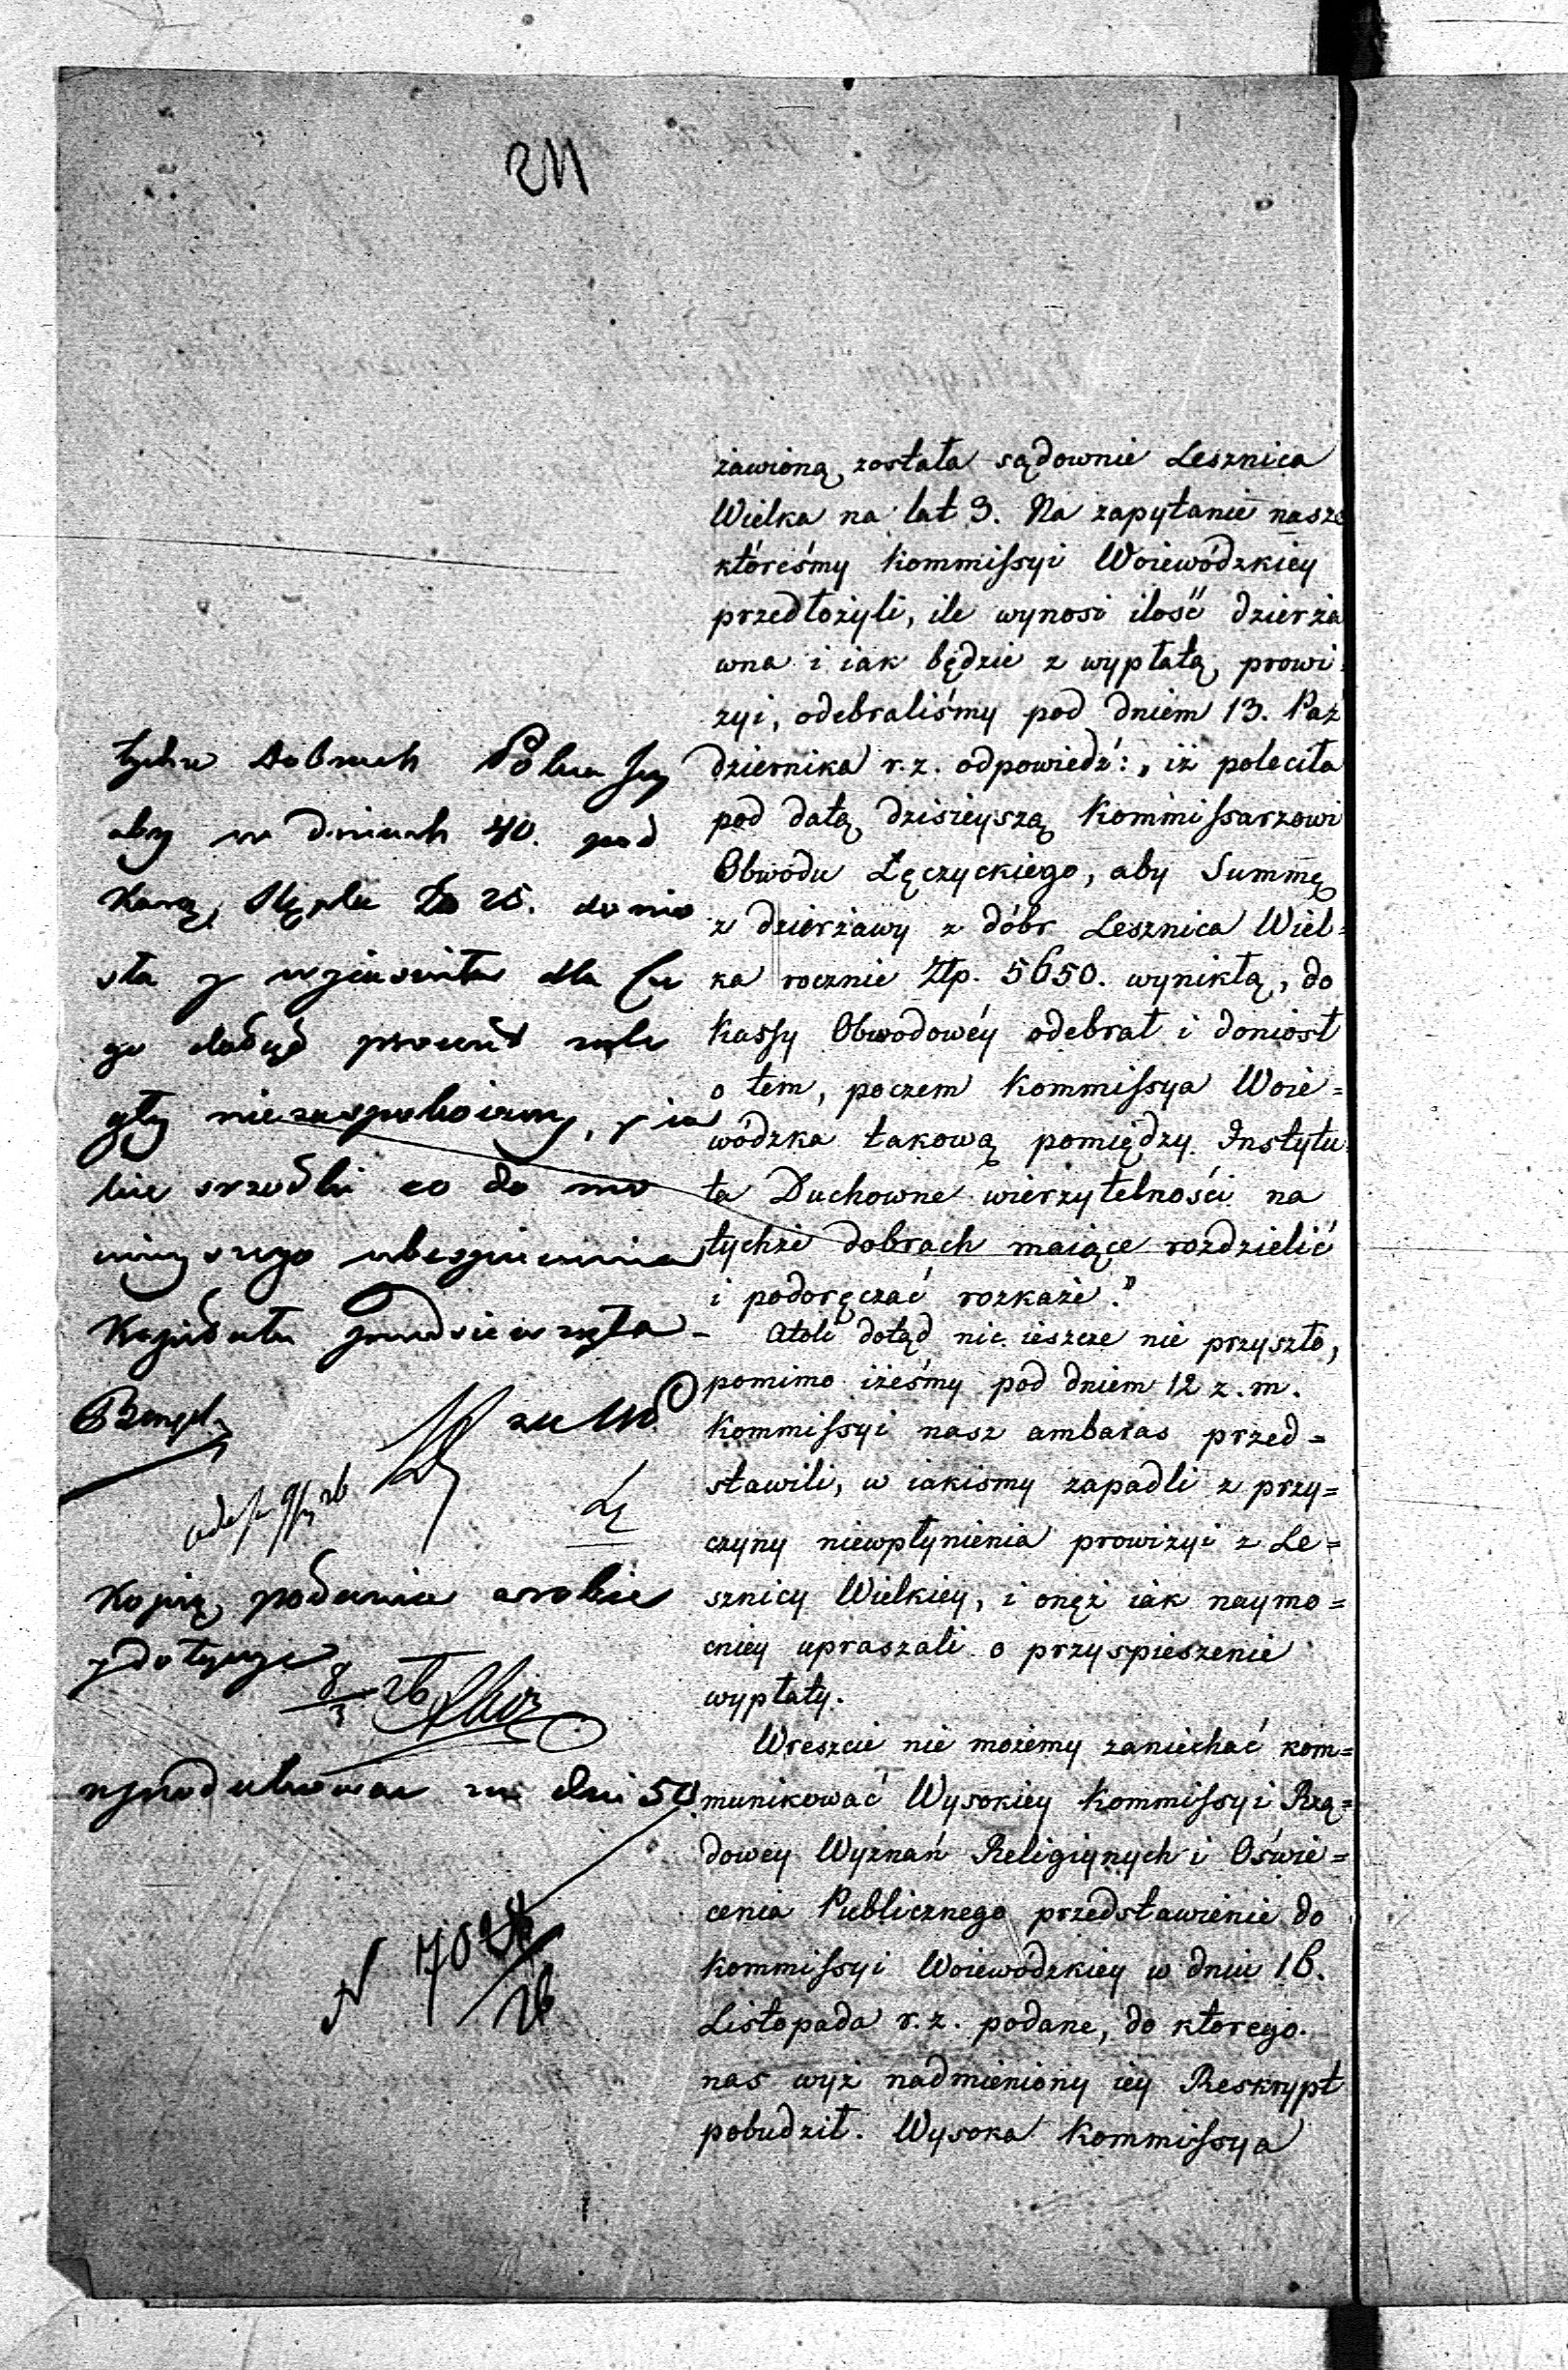 żawioną została sądownie Lesznica
Wielka na lat 3. Na zapytanie nasze
któreśmy Kommissyi Woiewódzkiey
przedłożyli, ile wynosi ilość dzierża
wna i iak będzie z wypłatą prowi
zyi, odebraliśmy pod dniem 13. Paź
dziernika r. z. odpowiedź: „iż poleciła
pod datą dzisieyszą Kommissarzowi
Obwodu Łęczyckiego, aby Summę
z dzierżawy z dóbr Lesznica Wiel=
ka rocznie Złp. 5650. wynikłą, do
Kassy Obwodowéy odebrał i doniosł
o tem, poczem Kommissya Woie=
wódzka takową pomiędzy Instytu
ta Duchowne wierzytelności na
tychże dobrach maiące rozdzielić
i podoręczać rozkaże.”
Atoli dotąd nic ieszcze nie przyszło,
pomimo iżeśmy pod dniem 12 z. m.
Kommissyi nasz ambaras przed=
stawili, w iakiśmy zapadli z przy=
czyny niewpłynienia prowizyi z Le=
sznicy Wielkiey, i onęż iak naymo=
cniey upraszali o przyspieszenie
wypłaty.
Wreszcie nie możemy zaniechać kom=
munikować Wysokiey Kommissyi Rzą=
dowey Wyznań Religiynych i Oświe=
cenia Publicznego przedstawienie do
Kommissyi Woiewódzkiey w dniu 16.
Listopada r. z. podane, do którego
nas wyż nadmieniony iey Reskrypt
pobudził. Wysoka Kommissya
tychże dobrach
aby w dniach 40. pod
Karą donio
sła y wyiaśniła dla cze
go dotąd procent
gły niezaspokoiony, y ia
kie srzodki co do
ubezpieczenia
Kapitału przedsięwzięła
Kopią podania
8/3 26
wyprodukować za dni 50.
N
26